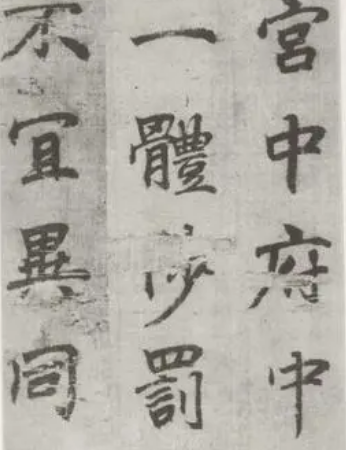 宮中府中
一體陟罰
不宜異同